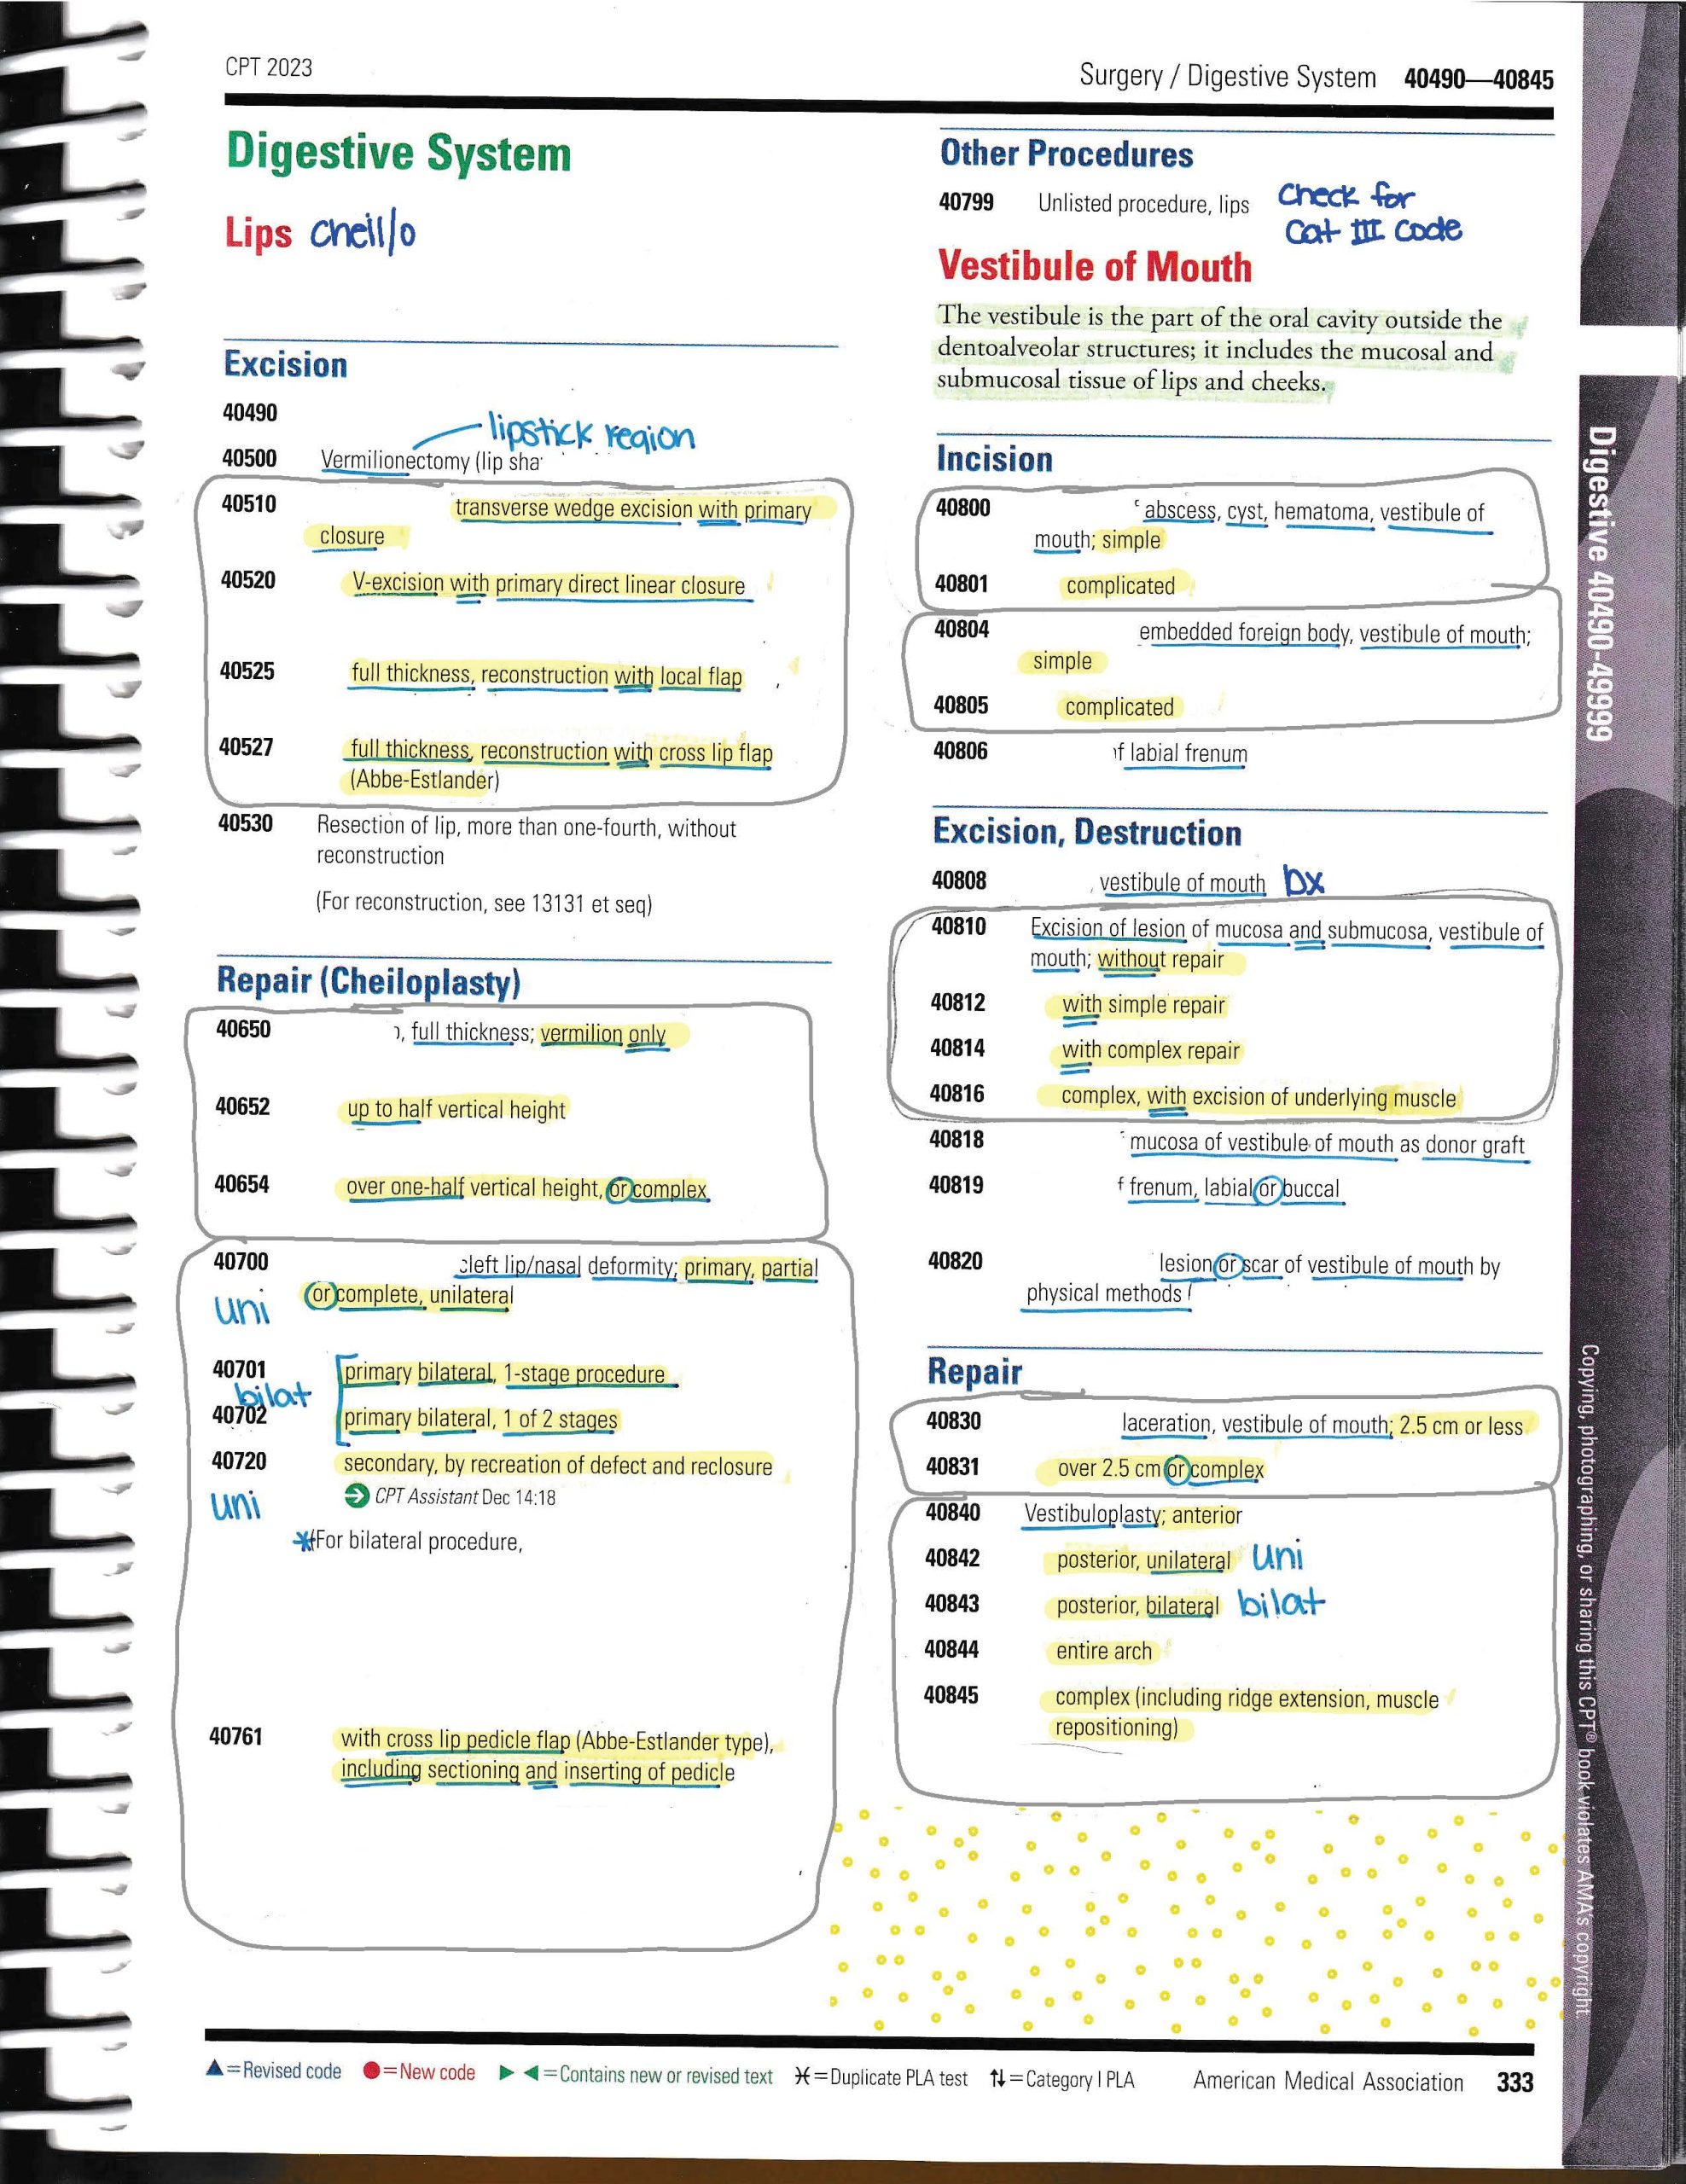 CPT 2023
Surgery / Digestive System 40490—40845
Digestive System
Lips cheil/o
Excision
40490
lipstick region
40500 Vermilionectomy (lip sha
40510 transverse wedge excision with primary
closure
40520 V-excision with primary direct linear closure
40525 full thickness, reconstruction with local flap
40527 full thickness, reconstruction with cross lip flap
(Abbe-Estlander)
40530 Resection of lip, more than one-fourth, without
reconstruction
(For reconstruction, see 13131 et seq)
Repair (Cheiloplasty)
40650 , full thickness; vermilion only
40652 up to half vertical height
40654 over one-half vertical height, or complex
40700 cleft lip/nasal deformity; primary, partial
uni or complete, unilateral
40701 primary bilateral, 1-stage procedure
bilat
40702 primary bilateral, 1 of 2 stages
40720 secondary, by recreation of defect and reclosure
uni CPT Assistant Dec 14:18
*(For bilateral procedure,
40761 with cross lip pedicle flap (Abbe-Estlander type),
including sectioning and inserting of pedicle
Other Procedures
40799 Unlisted procedure, lips check for
Cat III code
Vestibule of Mouth
The vestibule is the part of the oral cavity outside the
dentoalveolar structures; it includes the mucosal and
submucosal tissue of lips and cheeks.
Incision
40800 abscess, cyst, hematoma, vestibule of
mouth; simple
40801 complicated
40804 embedded foreign body, vestibule of mouth;
simple
40805 complicated
40806 f labial frenum
Excision, Destruction
40808 , vestibule of mouth bx
40810 Excision of lesion of mucosa and submucosa, vestibule of
mouth; without repair
40812 with simple repair
40814 with complex repair
40816 complex, with excision of underlying muscle
40818 mucosa of vestibule of mouth as donor graft
40819 f frenum, labial or buccal
40820 lesion or scar of vestibule of mouth by
physical methods (
Repair
40830 laceration, vestibule of mouth; 2.5 cm or less
40831 over 2.5 cm or complex
40840 Vestibuloplasty; anterior
40842 posterior, unilateral uni
40843 posterior, bilateral bilat
40844 entire arch
40845 complex (including ridge extension, muscle
repositioning)
Digestive 40490-49999
Copying, photographing, or sharing this CPT® book violates AMA's copyright.
▲=Revised code ●=New code ▶ ◀=Contains new or revised text ⚹=Duplicate PLA test ⇅=Category I PLA American Medical Association 333